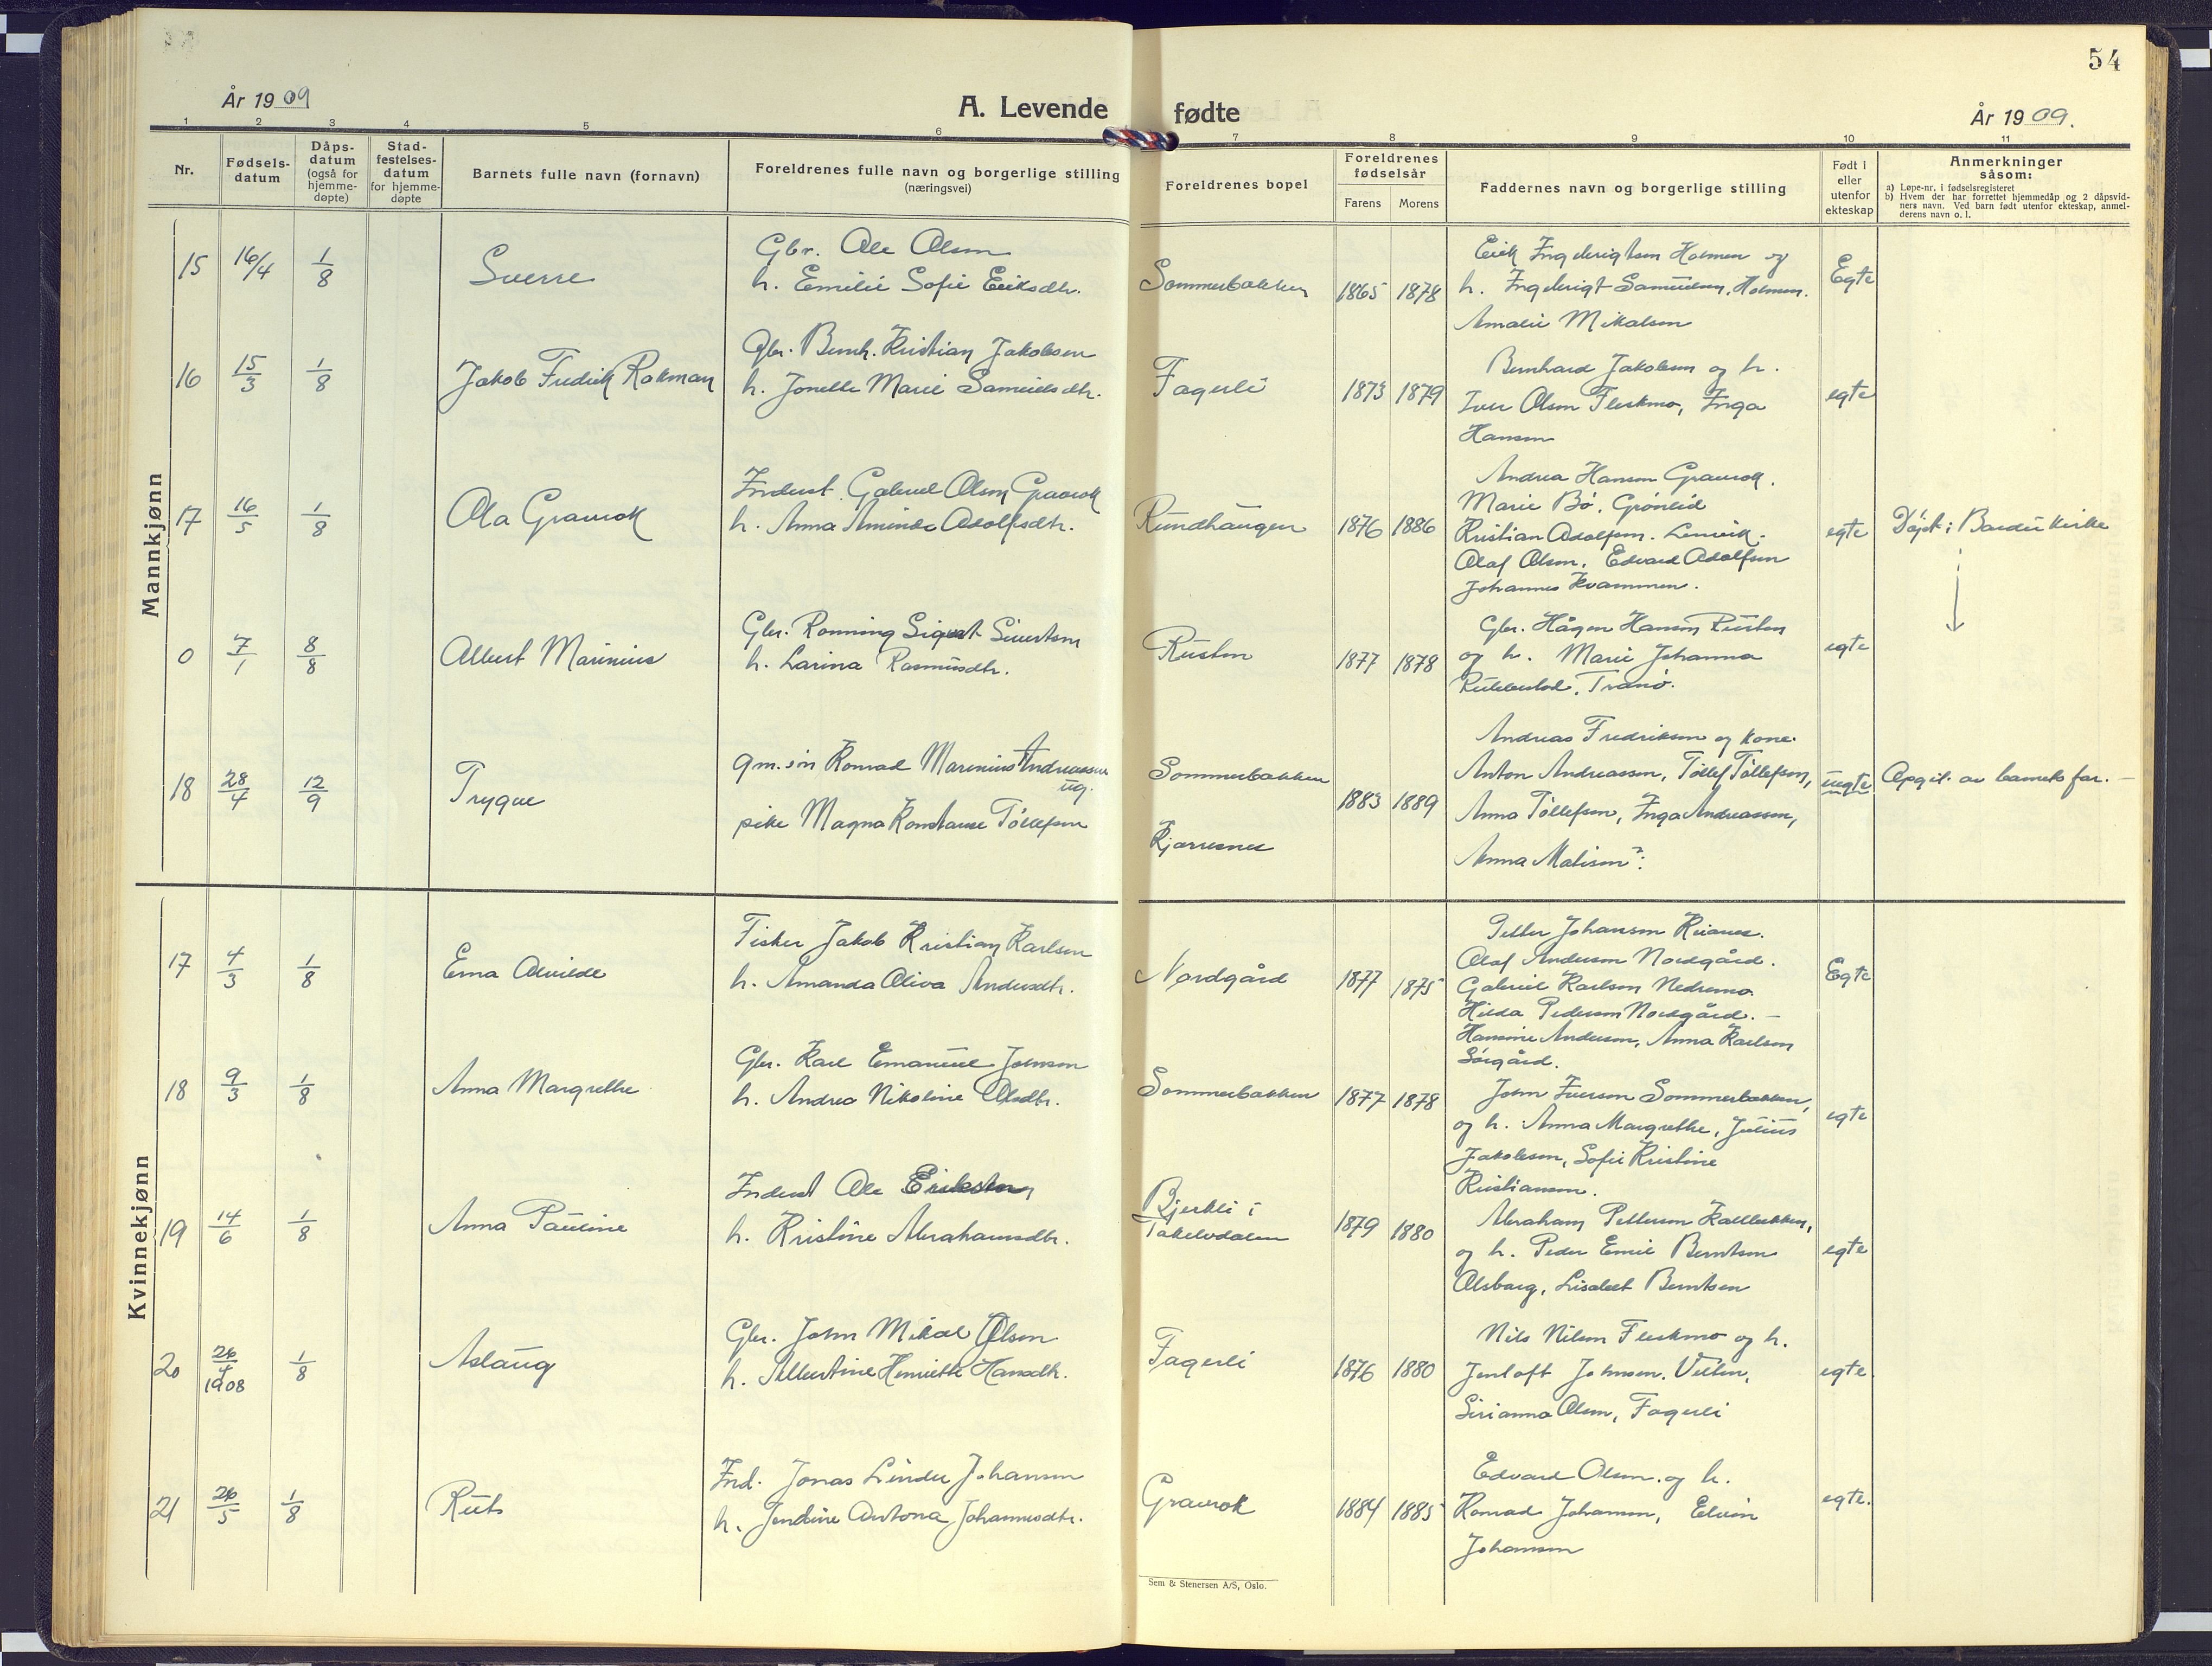 54
År 1909
A. Levende fødte
År 1909.
1 2 3 4 5 6 7 8 9 10 11
Nr.
Fødsels-
datum
Dåps-
datum
(også for
hjemme-
døpte)
Stad-
festelses-
datum
for hjemme-
døpte
Barnets fulle navn (fornavn)
Foreldrenes fulle navn og borgerlige stilling
(næringsvei)
Foreldrenes bopel
Foreldrenes
fødselsår
Farens Morens
Faddernes navn og borgerlige stilling
Født i
eller
utenfor
ekteskap
Anmerkninger
såsom:
a) Løpe-nr. i fødselsregisteret
b) Hvem der har forrettet hjemmedåp og 2 dåpsvid-
ners navn. Ved barn født utenfor ekteskap, anmel-
derens navn o. l.
Mannkjønn
15 16/4 1/8 Sverre
Gbr. Ole Olsen
h. Emilie Sofie Eriksdtr.
Sommerbakken 1865 1878
Erik Ingebrigtsen Holmen og
h. Ingebrigt Samuelsen, Holmen.
Amalie Mikalsen
Egte
16 15/3 1/8 Jakob Fredrik Rokman
Gbr. Bernh. Kristian Jakobsen
h. Jonette Marie Samuelsdtr.
Fagerli 1873 1879
Bernhard Jakobsen og h.
Iver Olsen Fleskmo, Inga
Hansen
egte
17 16/5 1/8 Ola Gravrok
Inderst. Gabriel Olsen Gravrok
h. Anna Aminda Adolfsdtr.
Rundhaugen 1876 1886
Andrea Hansen Gravrok.
Marie Bø. Grønlid
Kristian Adolfsen. Lenvik.
Olaf Olsen. Edvard Adolfsen
Johannes Kvammen.
egte
Døpt i Bardu kirke
0 7/1 8/8 Albert Marinius
Gbr. Rønning Sigvart Sivertsen
h. Larina Rasmusdtr.
Rusten 1877 1878
Gbr. Hågen Hansen Rusten
og h. Marie Johanna
Tranø.
egte
18 28/4 12/9 Trygve
gm. søn Konrad Marinius Andreassen
ug.
pike Magna Konstanse Tollefsen
Sommerbakken
Kjørresnes
1883 1889
Andreas Fredriksen og kone.
Anton Andreassen, Tollef Tollefsen,
Anna Tollefsen, Inga Andreassen,
Anna Matisen?:
uegte
Opgit. av barnets far. —
Kvinnekjønn
17 4/3 1/8 Erna Alvilde
Fisker Jakob Kristian Karlsen
h. Amanda Oliva Andersdtr.
Nordgård 1877 1875
Petter Johansen
Olaf Andersen Nordgård.
Gabriel Karlsen Nedremo
Hilda Pedersen Nordgård. —
Hansine Andersen, Anna Karlsen
Sørgård.
Egte
18 9/3 1/8 Anna Margrethe
Gbr. Karl Emanuel Johnsen
h. Andrea Nikoline Olsdtr.
Sommerbakken 1877 1878
John Iversen Sommerbakken,
og h. Anna Margrethe, Julius
Jakobsen, Sofie Kristine
Kristiansen.
egte
19 14/6 1/8 Anna Pauline
Inderst Ole Eriksen
h. Kristine Abrahamsdtr.
Bjerkli i
Takelvdalen
1879 1880
Abraham Pettersen Kalbekken,
og h. Peder Emil Berntsen
Olsborg, Lisabet Berntsen
egte
20 26/4 1908 1/8 Aslaug
Gbr. John Mikal Olsen
h. Albertine Henriette Hansdtr.
Fagerli 1876 1880
Nils Nilsen Fleskmo og h.
Jentoft Johnsen. Velten,
Sirianna Olsen, Fagerli
egte
21 26/5 1/8 Rut
Ind. Jonas Linder Johansen
h. Jendine Antona Johannesdtr.
Gravrok 1884 1885
Edvard Olsen. og h.
Konrad Johansen, Elvin
Johansen
egte.
Sem & Stenersen A/S, Oslo.